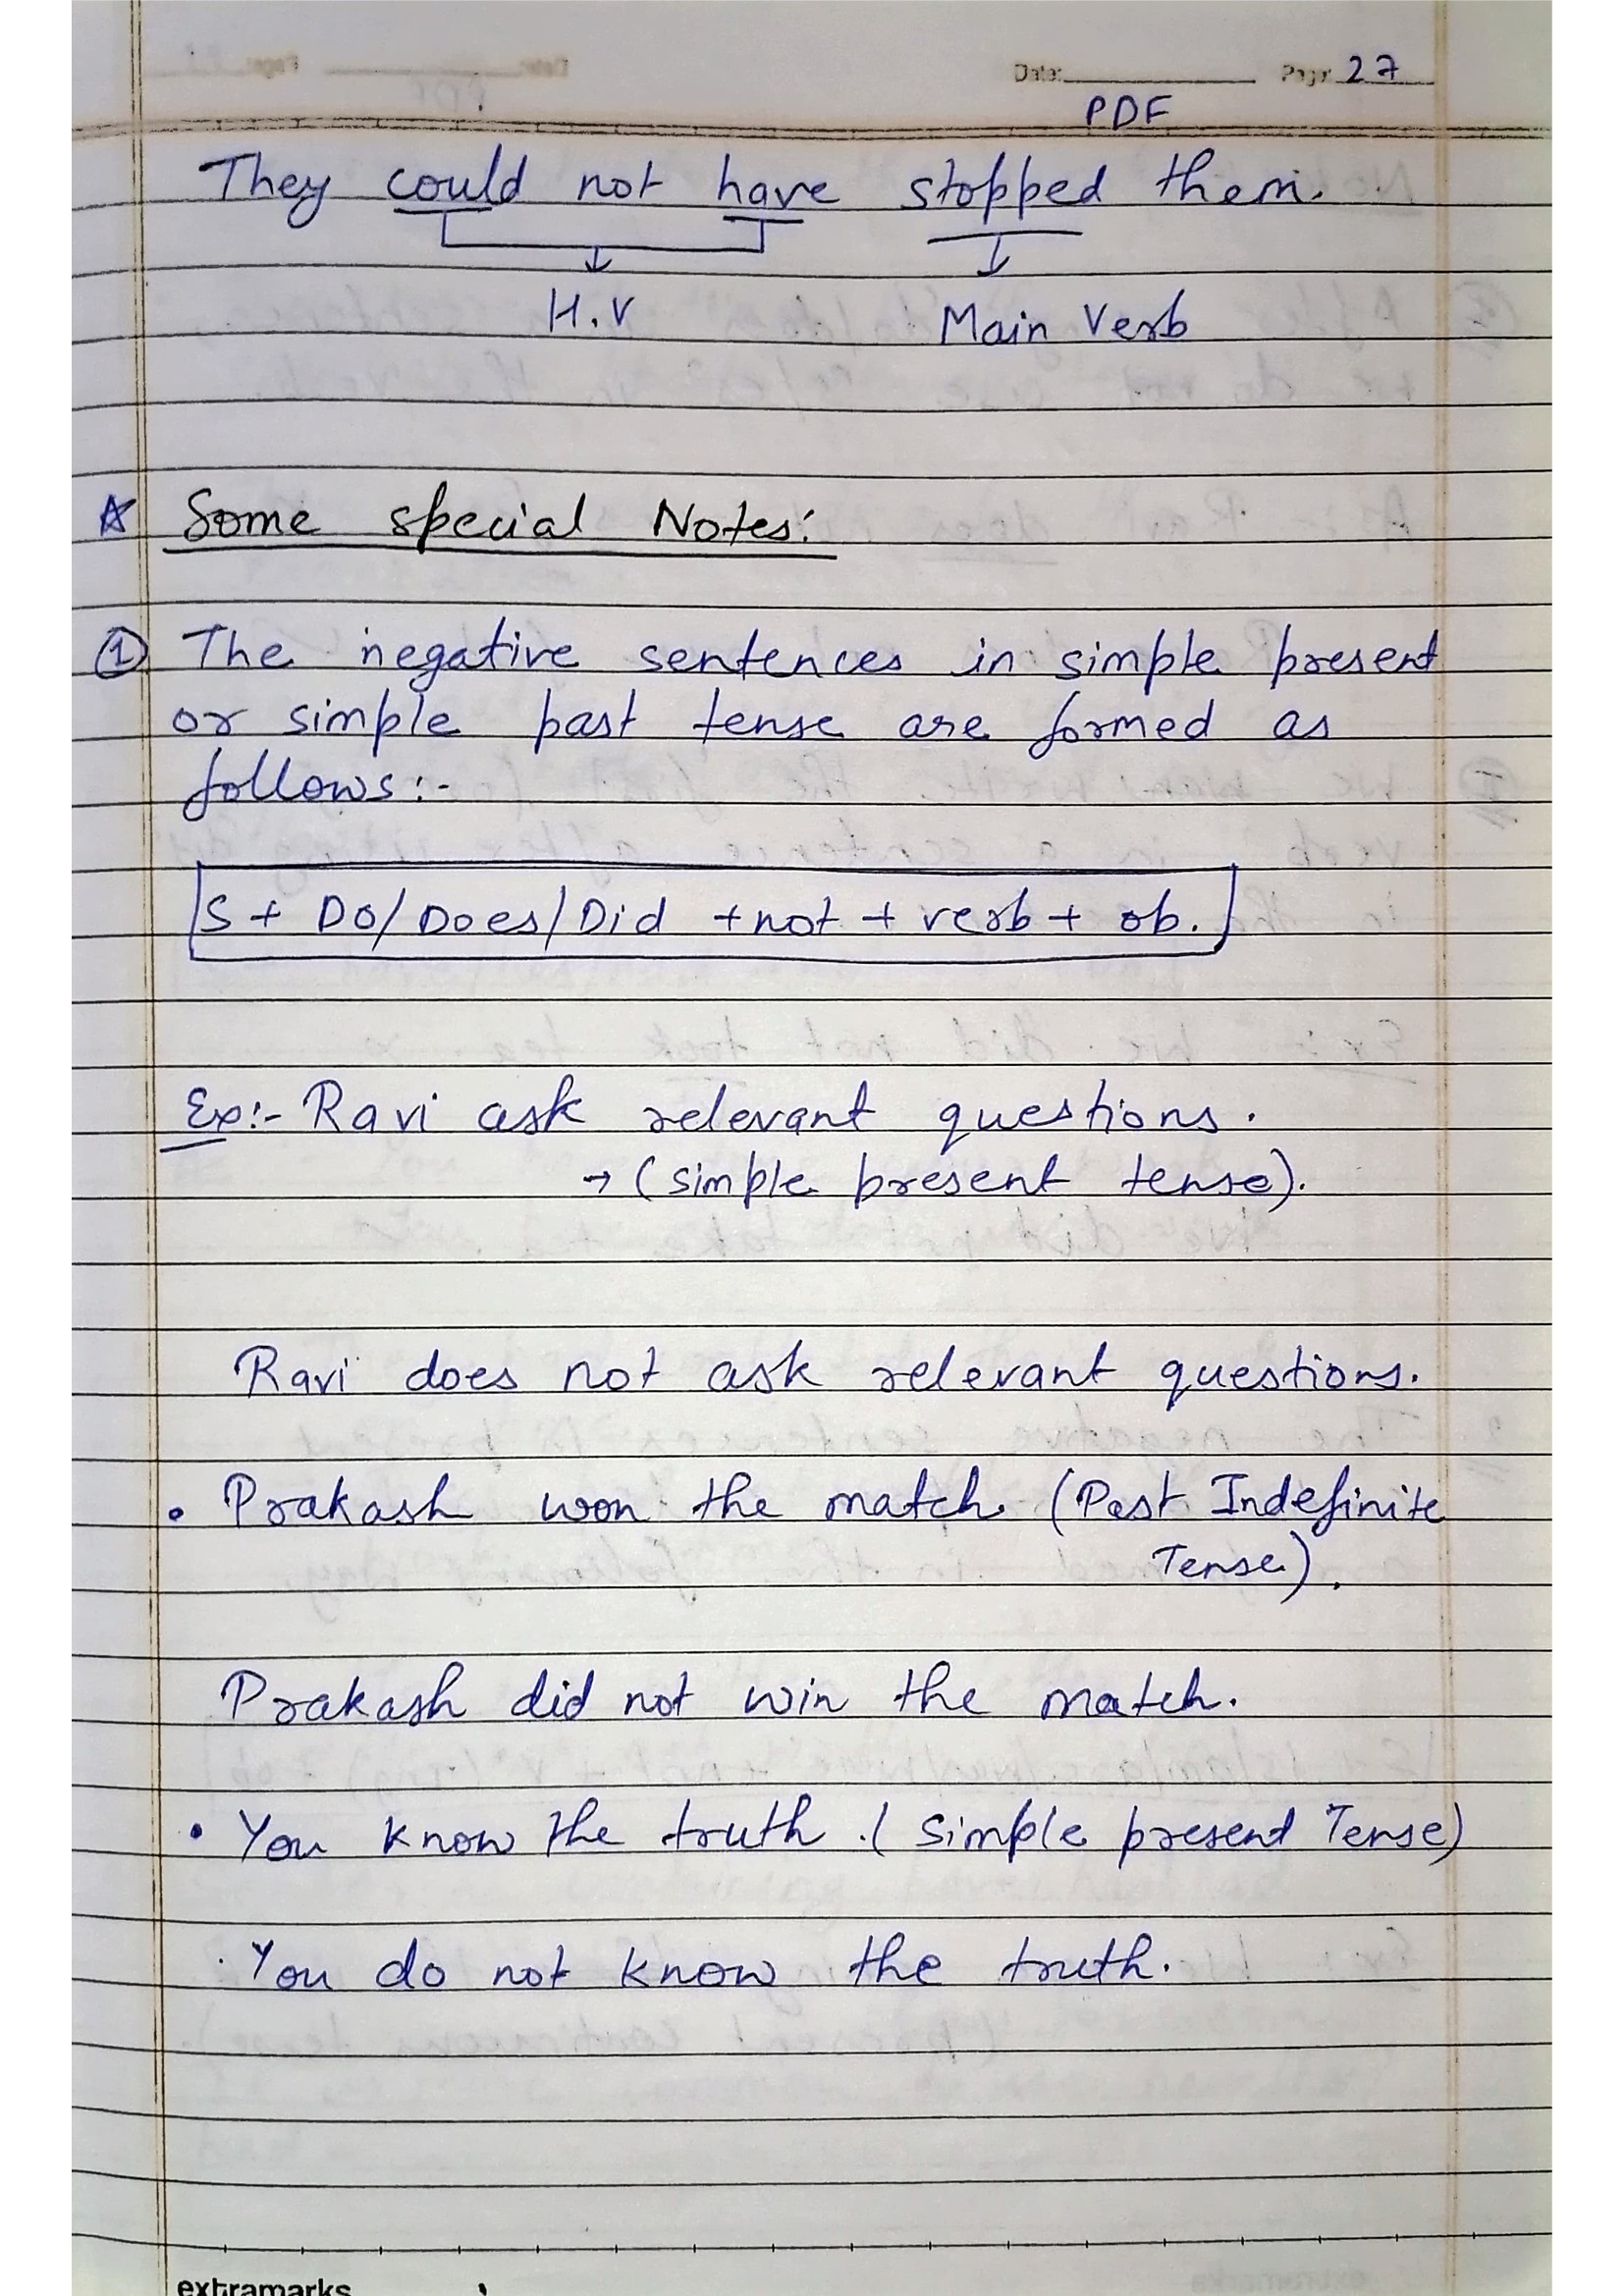 Date: Page: 27
PDF
They could not have stopped them.
H.V Main Verb
Some special Notes:
① The negative sentences in simple present
or simple past tense are formed as
follows:-
S + Do/Does/Did + not + verb + ob.
Ex:- Ravi ask relevant questions.
→ (simple present tense).
Ravi does not ask relevant questions.
• Prakash won the match (Past Indefinite
Tense).
Prakash did not win the match.
• You know the truth. (Simple present Tense)
You do not know the truth.
extramarks